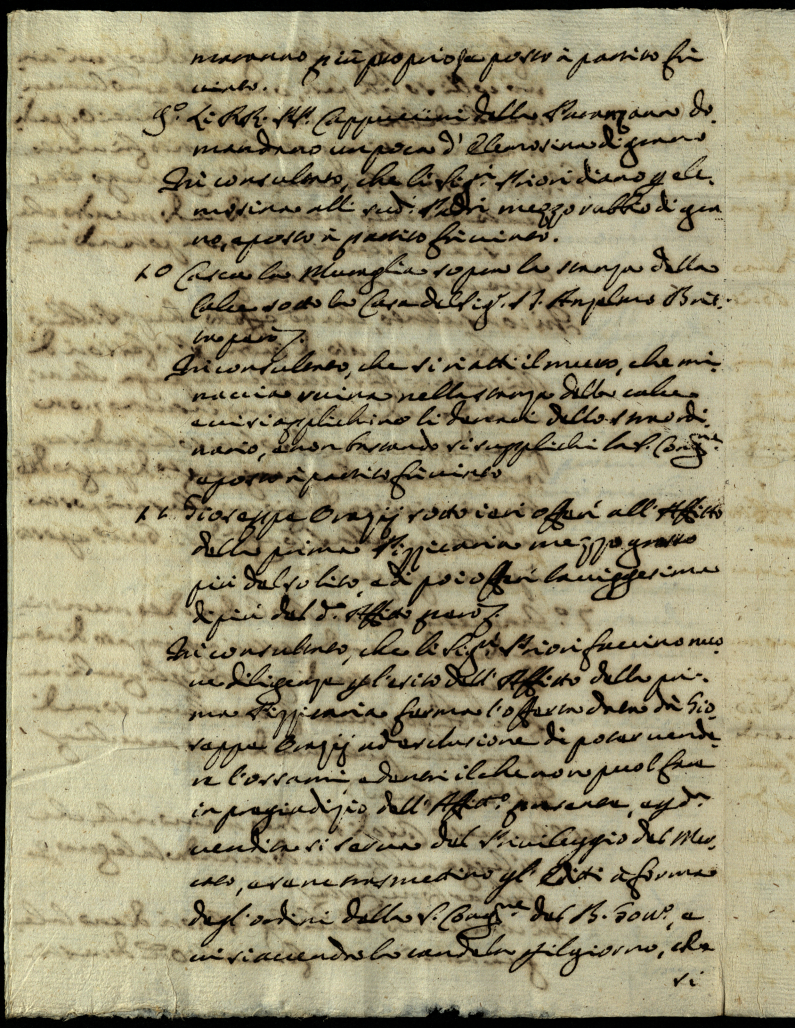 maranno più proprio, e posto à partito fù
vinto.
9.° Li RR. PP. Cappuccini della do-
mandano un poca d'Elemosina di grano
In consulendo, che li Sig.ri Priori diano p ele-
mosina alli sud.i Padri mezzo rubbio di gra
no, e posto à partito fù vinto.
10 Casca la Muraglia sopra la stanza della
Calce sotto la Casa del Sig.r D. Anselmo
In consulendo, che si riatti il muro, che mi-
naccia ruina nella stanza della calce
e vi si applichino li denari dello straordi-
nario, e non bastando si supplichi la S. Cong.ne
e posto à partito fù vinto
11 Gioseppe Orazij sotto ieri offerì all'Affitto
della prima Pizzicaria mezzo grosso
più del solito, e di poi offerì la vigesima
di più del d.o Affitto però
In consulendo, che li Sig.ri Priori faccino nuo
ve diligenze p l'esito dell'Affitto della pri-
ma Pizzicaria ferma l'offerta data da Gio-
seppe Orazij ad esclusione di poter vende-
re l'ossami, e denari il che non puol fare
in pregiudizio dell'Affitt.o presente, e p d.a
vendita si serva del Privileggio del Mer-
cato, e se ne trasmettino gl'Editti a forma
degl'ordini della S. Cong.ne del B. Gov.o, e
vi si accenda la candela p il giorno, che
si